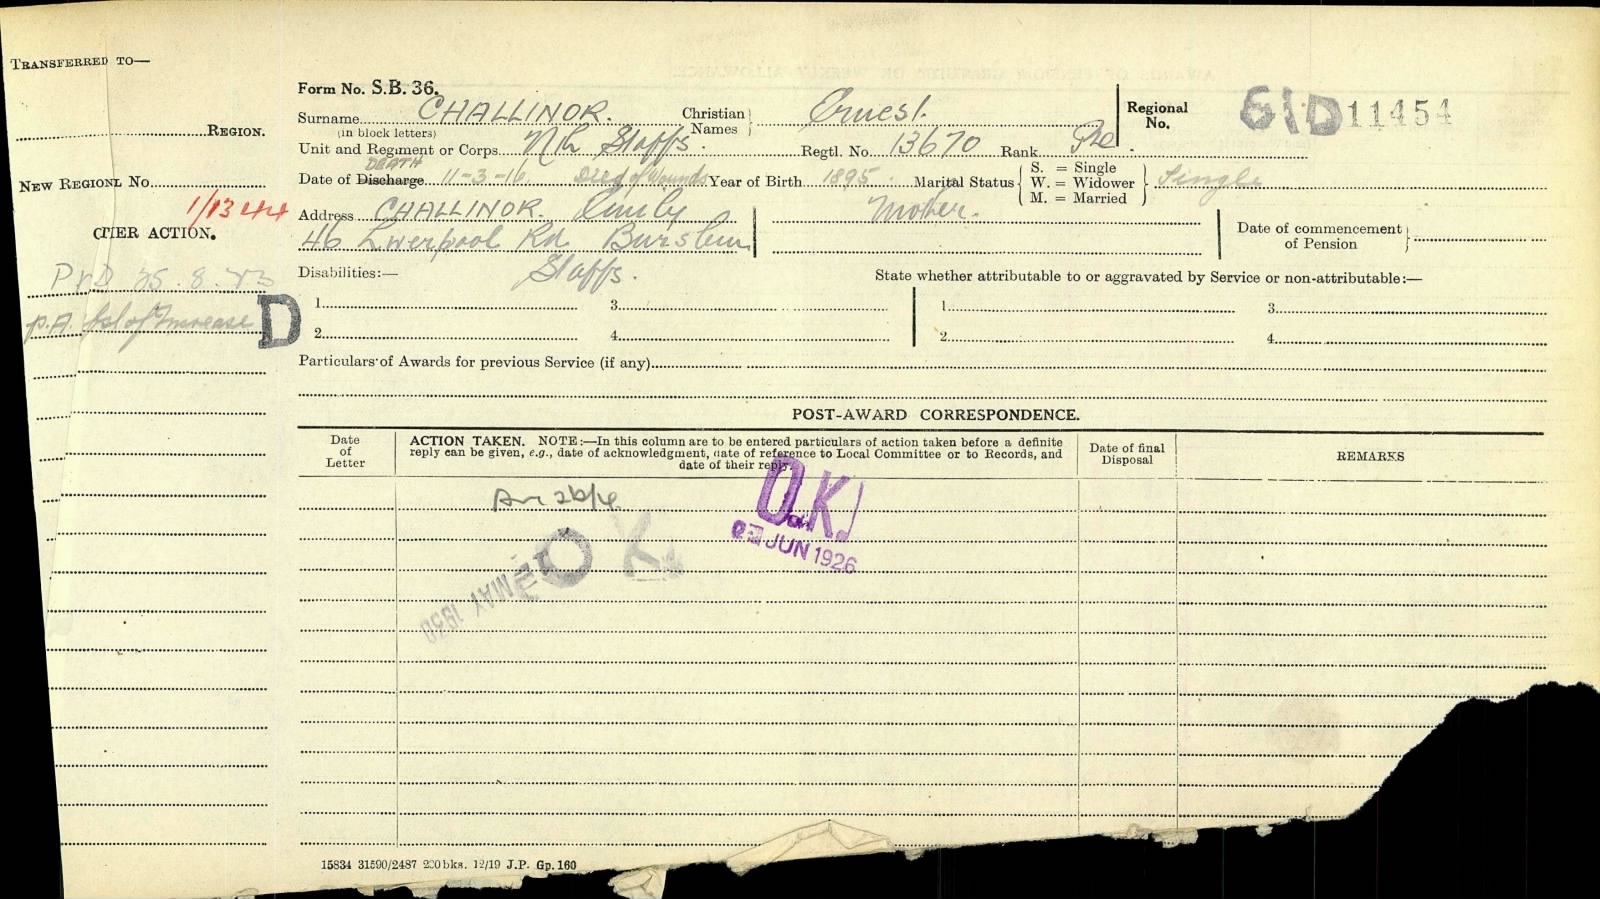 TRANSFERRED TO—
REGION.
NEW REGIONL NO.
1/1344
OTHER ACTION.
D
Form No. S.B. 36.
Surname CHALLINOR.
(in block letters)
Christian Names } Ernest.
Regional No. 6/D 11454
Unit and Regiment or Corps Nth Staffs.
Regtl. No. 13670 Rank Pte.
DEATH
Date of Discharge 11-3-16. Died of Wounds Year of Birth 1895. Marital Status { S. = Single W. = Widower M. = Married } Single
Address CHALLINOR. Emily Mother.
46 Liverpool Rd Burslem
Staffs.
Date of commencement of Pension }
Disabilities:—
State whether attributable to or aggravated by Service or non-attributable:—
1. 3. 1. 3.
2. 4. 2. 4.
Particulars of Awards for previous Service (if any)
POST-AWARD CORRESPONDENCE.
Date of Letter
ACTION TAKEN. NOTE:—In this column are to be entered particulars of action taken before a definite
reply can be given, e.g., date of acknowledgment, date of reference to Local Committee or to Records, and
date of their reply.
Date of final Disposal
REMARKS
O.K.
JUN 1926
O K
MAY 1930
15834 31590/2487 200bks. 12/19 J.P. Gp. 160